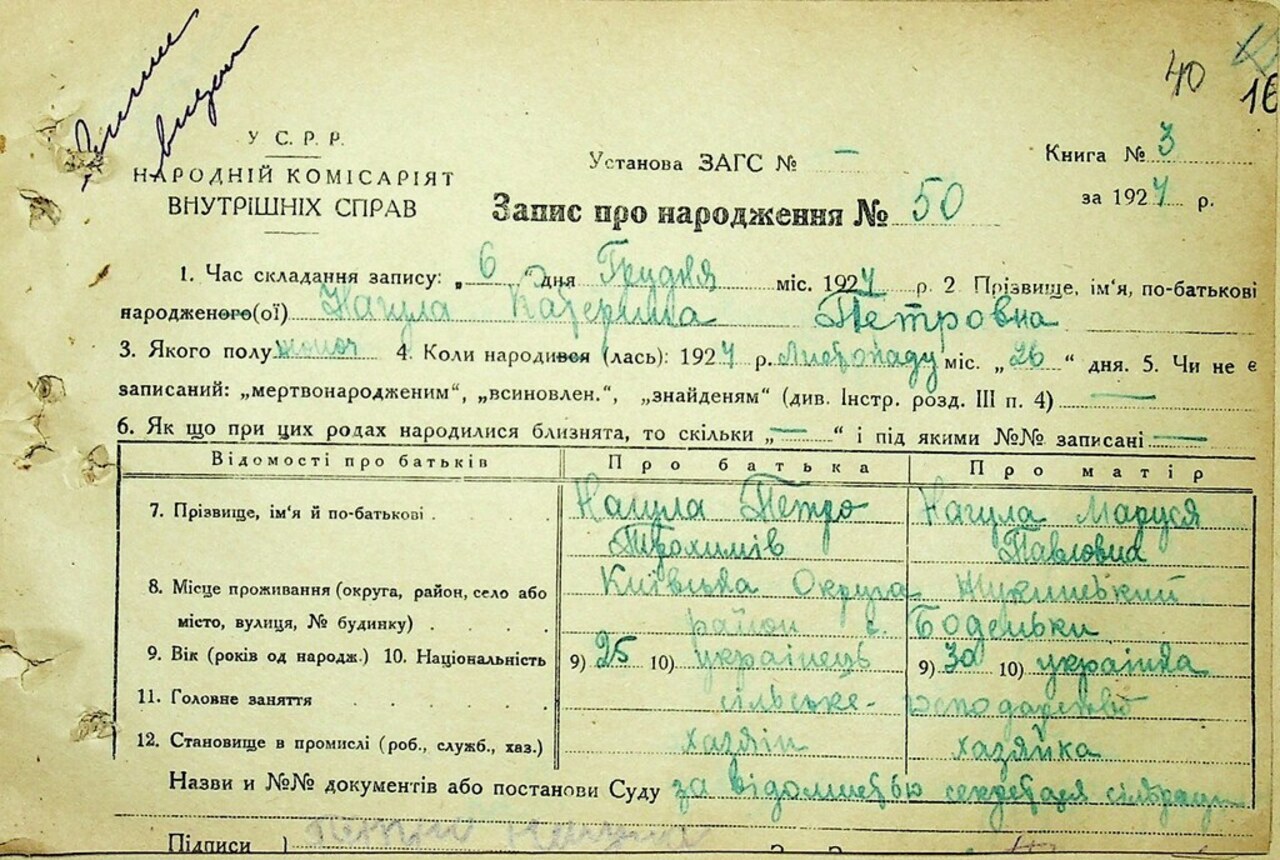 Виписи
видан
40
16
У С. Р. Р.
НАРОДНІЙ КОМІСАРІЯТ
ВНУТРІШНІХ СПРАВ
Установа ЗАГС № —
Книга № 3
за 1927 р.
Запис про народження № 50
1. Час складання запису: „ 6 “ дня Грудня міс. 1927 р. 2 Прізвище, ім'я, по-батькові
народженого(ої) Нагула Катерина Петровна
3. Якого полу жіноч 4. Коли народився (лась): 1927 р. Листопаду міс. „ 26 “ дня. 5. Чи не є
записаний: „мертвонародженим“, „всиновлен.“, „знайденям“ (див. Інстр. розд. III п. 4) —
6. Як що при цих родах народилися близнята, то скільки „ — “ і під якими №№ записані —
Відомості про батьків Про батька Про матір
7. Прізвище, ім'я й по-батькові . Нагула Петро Нагула Маруся
Трохимів Павловна
8. Місце проживання (округа, район, село або Київська Округа Жукинський
місто, вулиця, № будинку) район с. Боденьки
9. Вік (років од народж.) 10. Національність 9) 25 10) українець 9) 30 10) українка
11. Головне заняття сільське- господарство
12. Становище в промислі (роб., служб., хаз.) хазяїн хазяйка
Назви и №№ документів або постанови Суду за відомистью секретаря сільради
Підписи }